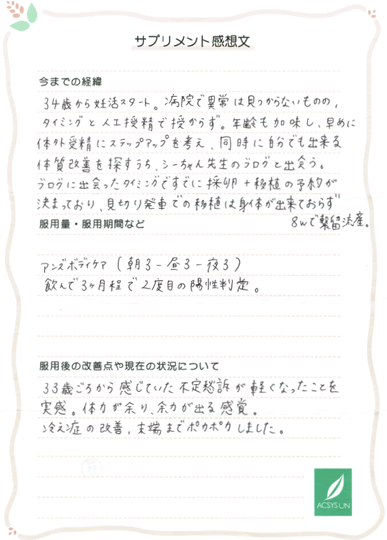 サプリメント感想文
今までの経緯
34歳から妊活スタート。病院で異常は見つからないものの,
タイミングと人工授精で授からず。年齢も加味し、早めに
体外受精にステップアップを考え、同時に自分でも出来る
体質改善を探すうち、シーちゃん先生のブログと出会う。
ブログに出会ったタイミングですでに採卵+移植の予約が
決まっており、見切り発車での移植は身体が出来ておらず
8wで稽留流産。
服用量・服用期間など
アンズボディケア(朝3-昼3-夜3)
飲んで3ヶ月程で2度目の陽性判定。
服用後の改善点や現在の状況について
33歳ごろから感じていた不定愁訴が軽くなったことを
実感。体力が余り、余力が出る感覚。
冷え症の改善、末端までポカポカしました。
ACSYS UN